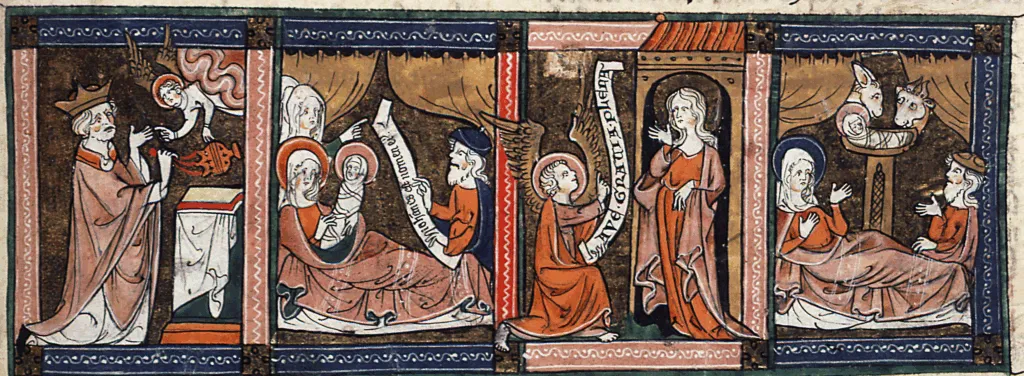 iohannes est nomen ei
AVE GRATIA PLENA